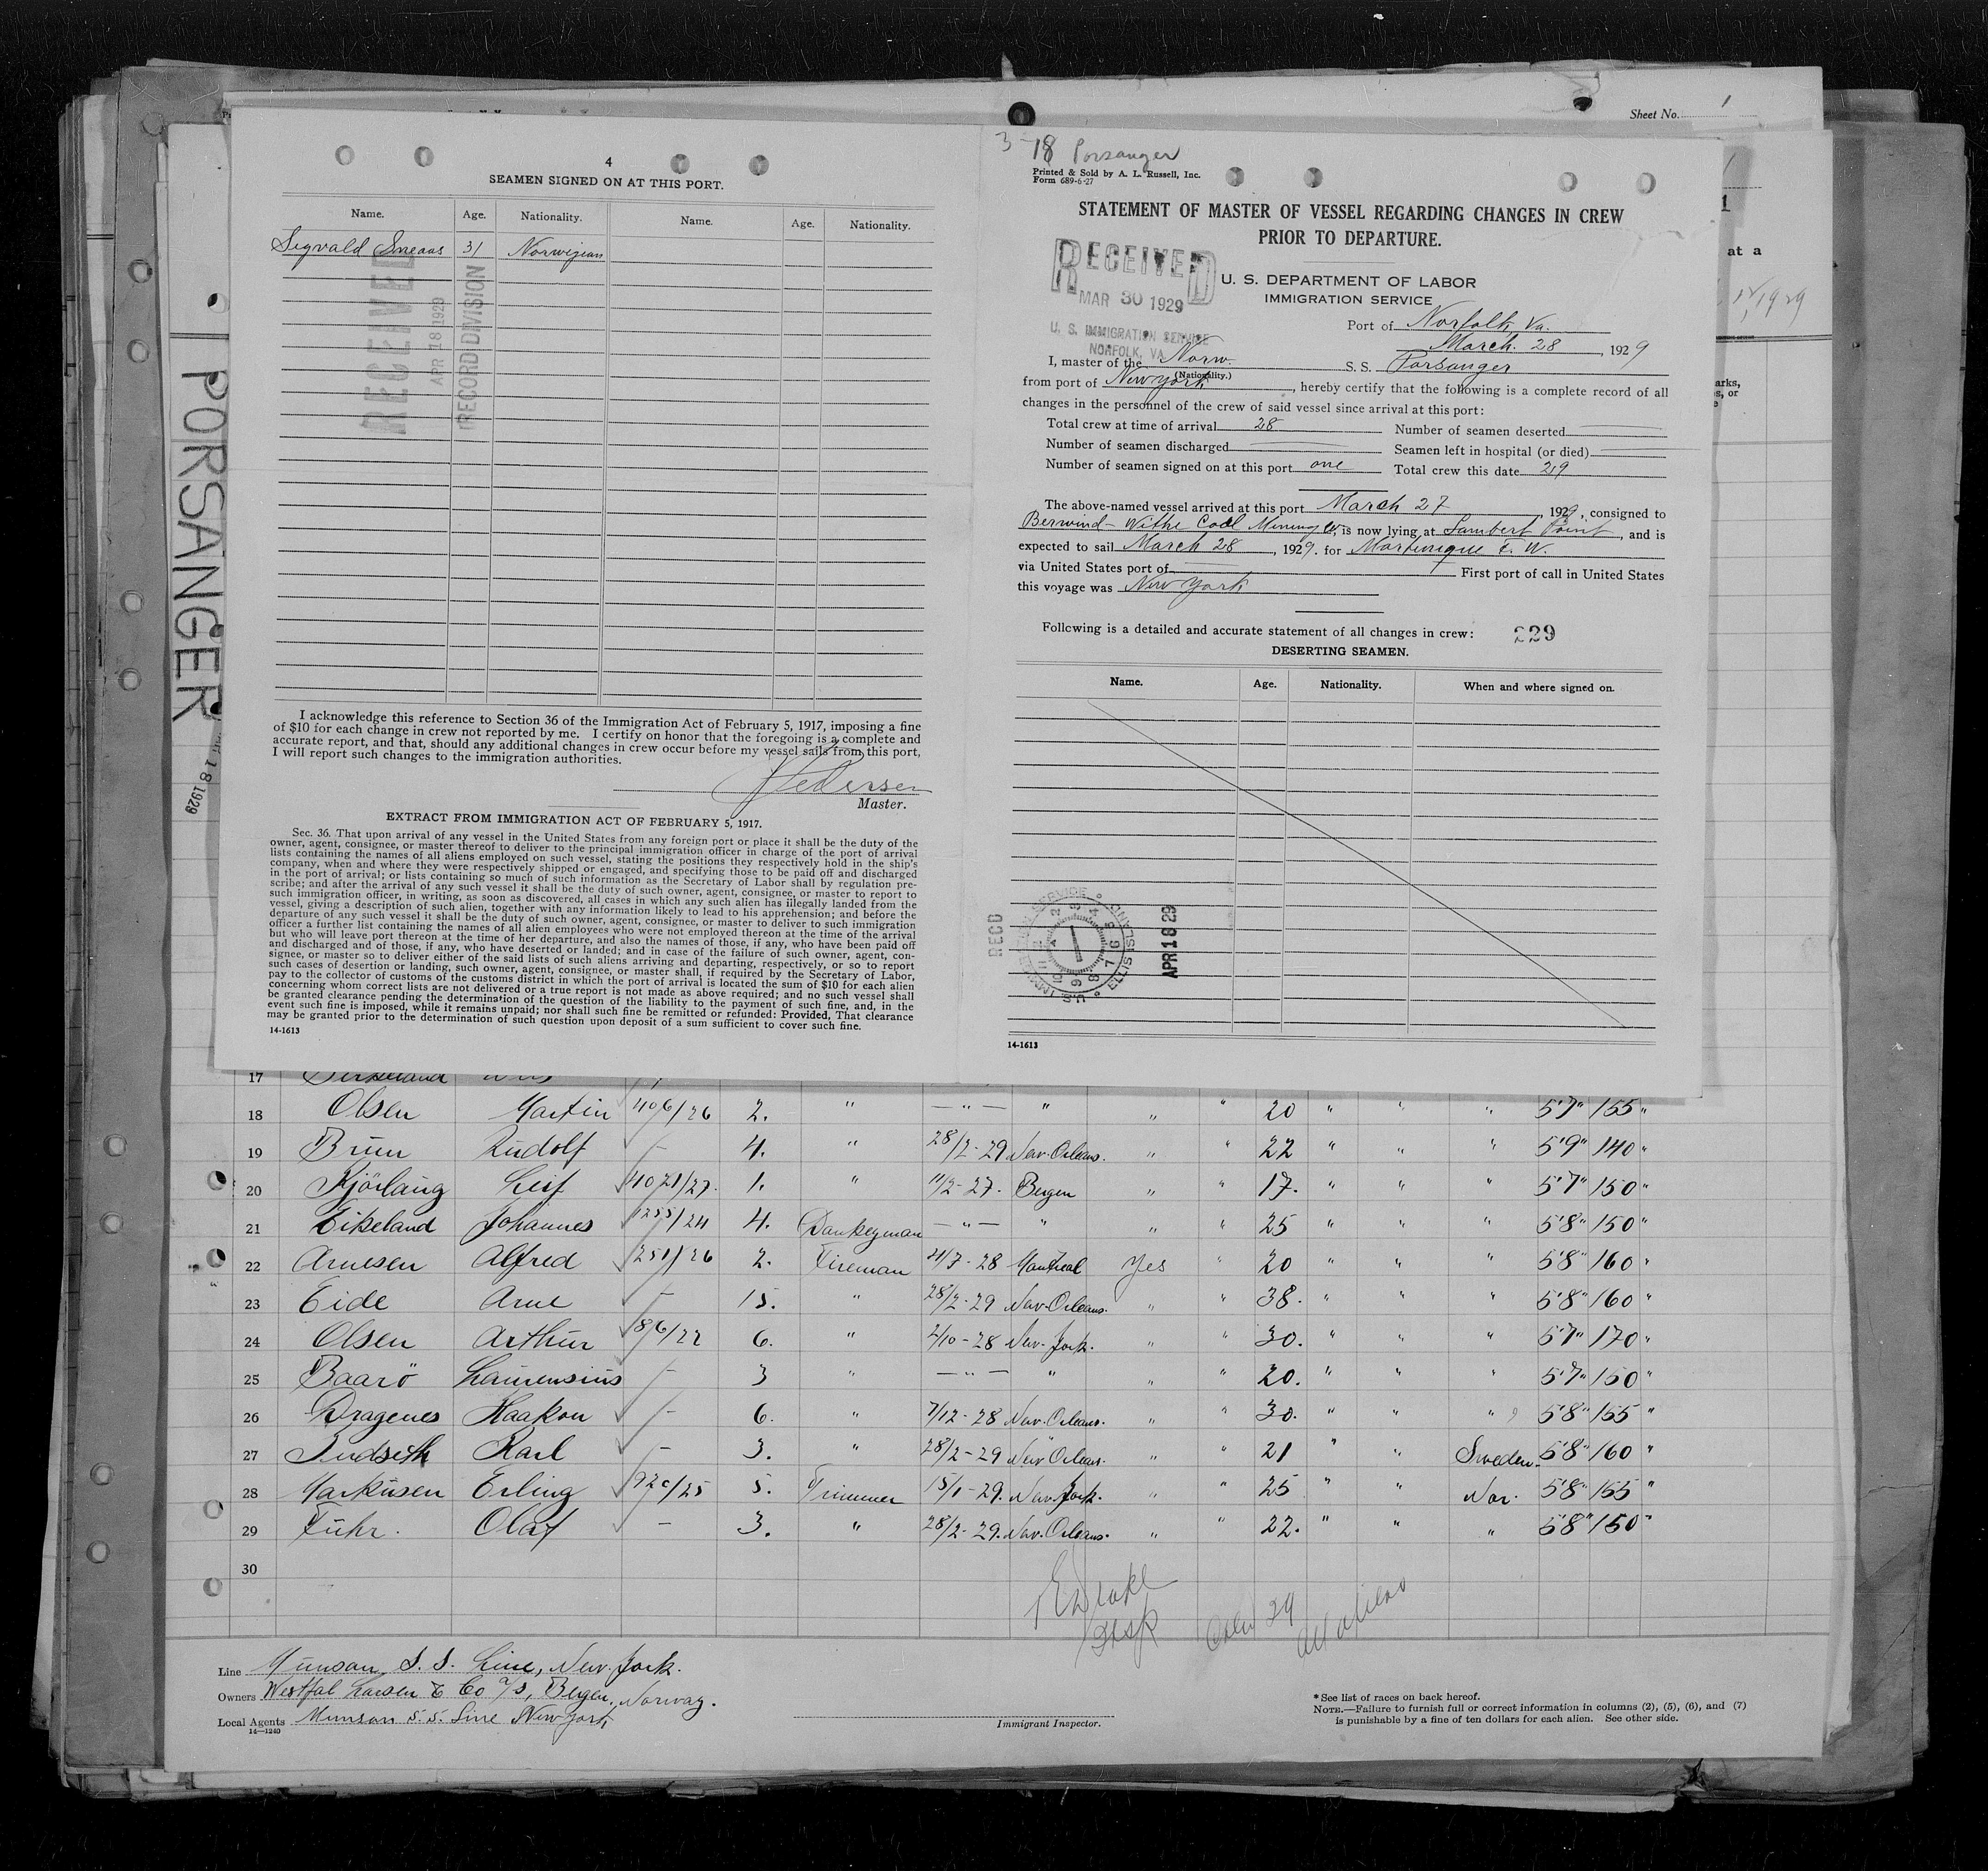 Sheet No. 1
4
SEAMEN SIGNED ON AT THIS PORT.
Name. Age. Nationality. Name. Age. Nationality.
Sigvald Sneaas 31 Norwegian
RECEIVED
APR 18 1929
RECORD DIVISION
I acknowledge this reference to Section 36 of the Immigration Act of February 5, 1917, imposing a fine
of $10 for each change in crew not reported by me. I certify on honor that the foregoing is a complete and
accurate report, and that, should any additional changes in crew occur before my vessel sails from this port,
I will report such changes to the immigration authorities.
Pedersen
Master.
EXTRACT FROM IMMIGRATION ACT OF FEBRUARY 5, 1917.
Sec. 36. That upon arrival of any vessel in the United States from any foreign port or place it shall be the duty of the
owner, agent, consignee, or master thereof to deliver to the principal immigration officer in charge of the port of arrival
lists containing the names of all aliens employed on such vessel, stating the positions they respectively hold in the ship's
company, when and where they were respectively shipped or engaged, and specifying those to be paid off and discharged
in the port of arrival; or lists containing so much of such information as the Secretary of Labor shall by regulation pre-
scribe; and after the arrival of any such vessel it shall be the duty of such owner, agent, consignee, or master to report to
such immigration officer, in writing, as soon as discovered, all cases in which any such alien has illegally landed from the
vessel, giving a description of such alien, together with any information likely to lead to his apprehension; and before the
departure of any such vessel it shall be the duty of such owner, agent, consignee, or master to deliver to such immigration
officer a further list containing the names of all alien employees who were not employed thereon at the time of the arrival
but who will leave port thereon at the time of her departure, and also the names of those, if any, who have been paid off
and discharged and of those, if any, who have deserted or landed; and in case of the failure of such owner, agent, con-
signee, or master so to deliver either of the said lists of such aliens arriving and departing, respectively, or so to report
such cases of desertion or landing, such owner, agent, consignee, or master shall, if required by the Secretary of Labor,
pay to the collector of customs of the customs district in which the port of arrival is located the sum of $10 for each alien
concerning whom correct lists are not delivered or a true report is not made as above required; and no such vessel shall
be granted clearance pending the determination of the question of the liability to the payment of such fine, and, in the
event such fine is imposed, while it remains unpaid; nor shall such fine be remitted or refunded: Provided, That clearance
may be granted prior to the determination of such question upon deposit of a sum sufficient to cover such fine.
14-1613
3-18 Porsanger
Printed & Sold by A. L. Russell, Inc.
Form 689-6-27
STATEMENT OF MASTER OF VESSEL REGARDING CHANGES IN CREW
PRIOR TO DEPARTURE.
RECEIVED
MAR 30 1929
U. S. IMMIGRATION SERVICE
NORFOLK, VA
U. S. DEPARTMENT OF LABOR
IMMIGRATION SERVICE
Port of Norfolk, Va.
March. 28, 1929
I, master of the Norw. S. S. Porsanger
(Nationality.)
from port of New york, hereby certify that the following is a complete record of all
changes in the personnel of the crew of said vessel since arrival at this port:
Total crew at time of arrival 28 Number of seamen deserted
Number of seamen discharged Seamen left in hospital (or died)
Number of seamen signed on at this port one Total crew this date 29
The above-named vessel arrived at this port March 27, 1929, consigned to
Berwind-Withe Coal Mining Co, is now lying at Lambert Point, and is
expected to sail March 28, 1929. for Martinique F. W.
via United States port of First port of call in United States
this voyage was New York
Following is a detailed and accurate statement of all changes in crew: 229
DESERTING SEAMEN.
Name. Age. Nationality. When and where signed on.
RECD
U.S. IMMIG SERVICE ELLIS ISLAND
APR 18 29
14-1613
at a
1
arks,
s, or
e
PORSANGER
18 1929
17 Birkeland
18 Olsen Martin 406/26 2. " — " — " " " 20 " " " 5'7" 155 "
19 Bruu Rudolf - 4. " 28/2-29 New-Orleans. " " 22 " " " 5'9" 140 "
20 Kjörlaug Leif 4021/27. 1. " 11/2-27. Bergen " " 17. " " " 5'7" 150 "
21 Eikeland Johannes 1255/24 4. Dankeyman — " — " " " 25 " " " 5'8" 150 "
22 Arnesen Alfred 251/26 2. Fireman 21/7-28 Montreal Yes " 20 " " " 5'8" 160 "
23 Eide Arne - 15. " 28/2-29 New-Orleans. " " 38. " " " 5'8" 160 "
24 Olsen Arthur 86/22 6. " 2/10-28 New-York. " " 30. " " " 5'7" 170 "
25 Baarö Laurensius - 3 " — " — " " " 20. " " " 5'7" 150 "
26 Dragenes Haakon - 6. " 7/12-28 New-Orleans. " " 30. " " " 5'8" 155 "
27 Indseth Karl - 3. " 28/2-29 New Orleans. " " 21 " " Sweden. 5'8" 160 "
28 Markusen Erling 920/25 5. Trimmer 15/1-29. New-York. " " 25 " " Nor. 5'8" 155 "
29 Fuhr. Olaf - 3. " 28/2-29. New-Orleans. " " 22. " " " 5'8" 150 "
30
Crew 29
Line Munson S. S. Line, New-York.
Owners Westfal Larsen & Co A/S, Bergen, Norway.
Local Agents Munson S. S. Line New York
14—1240
Immigrant Inspector.
* See list of races on back hereof.
NOTE.—Failure to furnish full or correct information in columns (2), (5), (6), and (7)
is punishable by a fine of ten dollars for each alien. See other side.